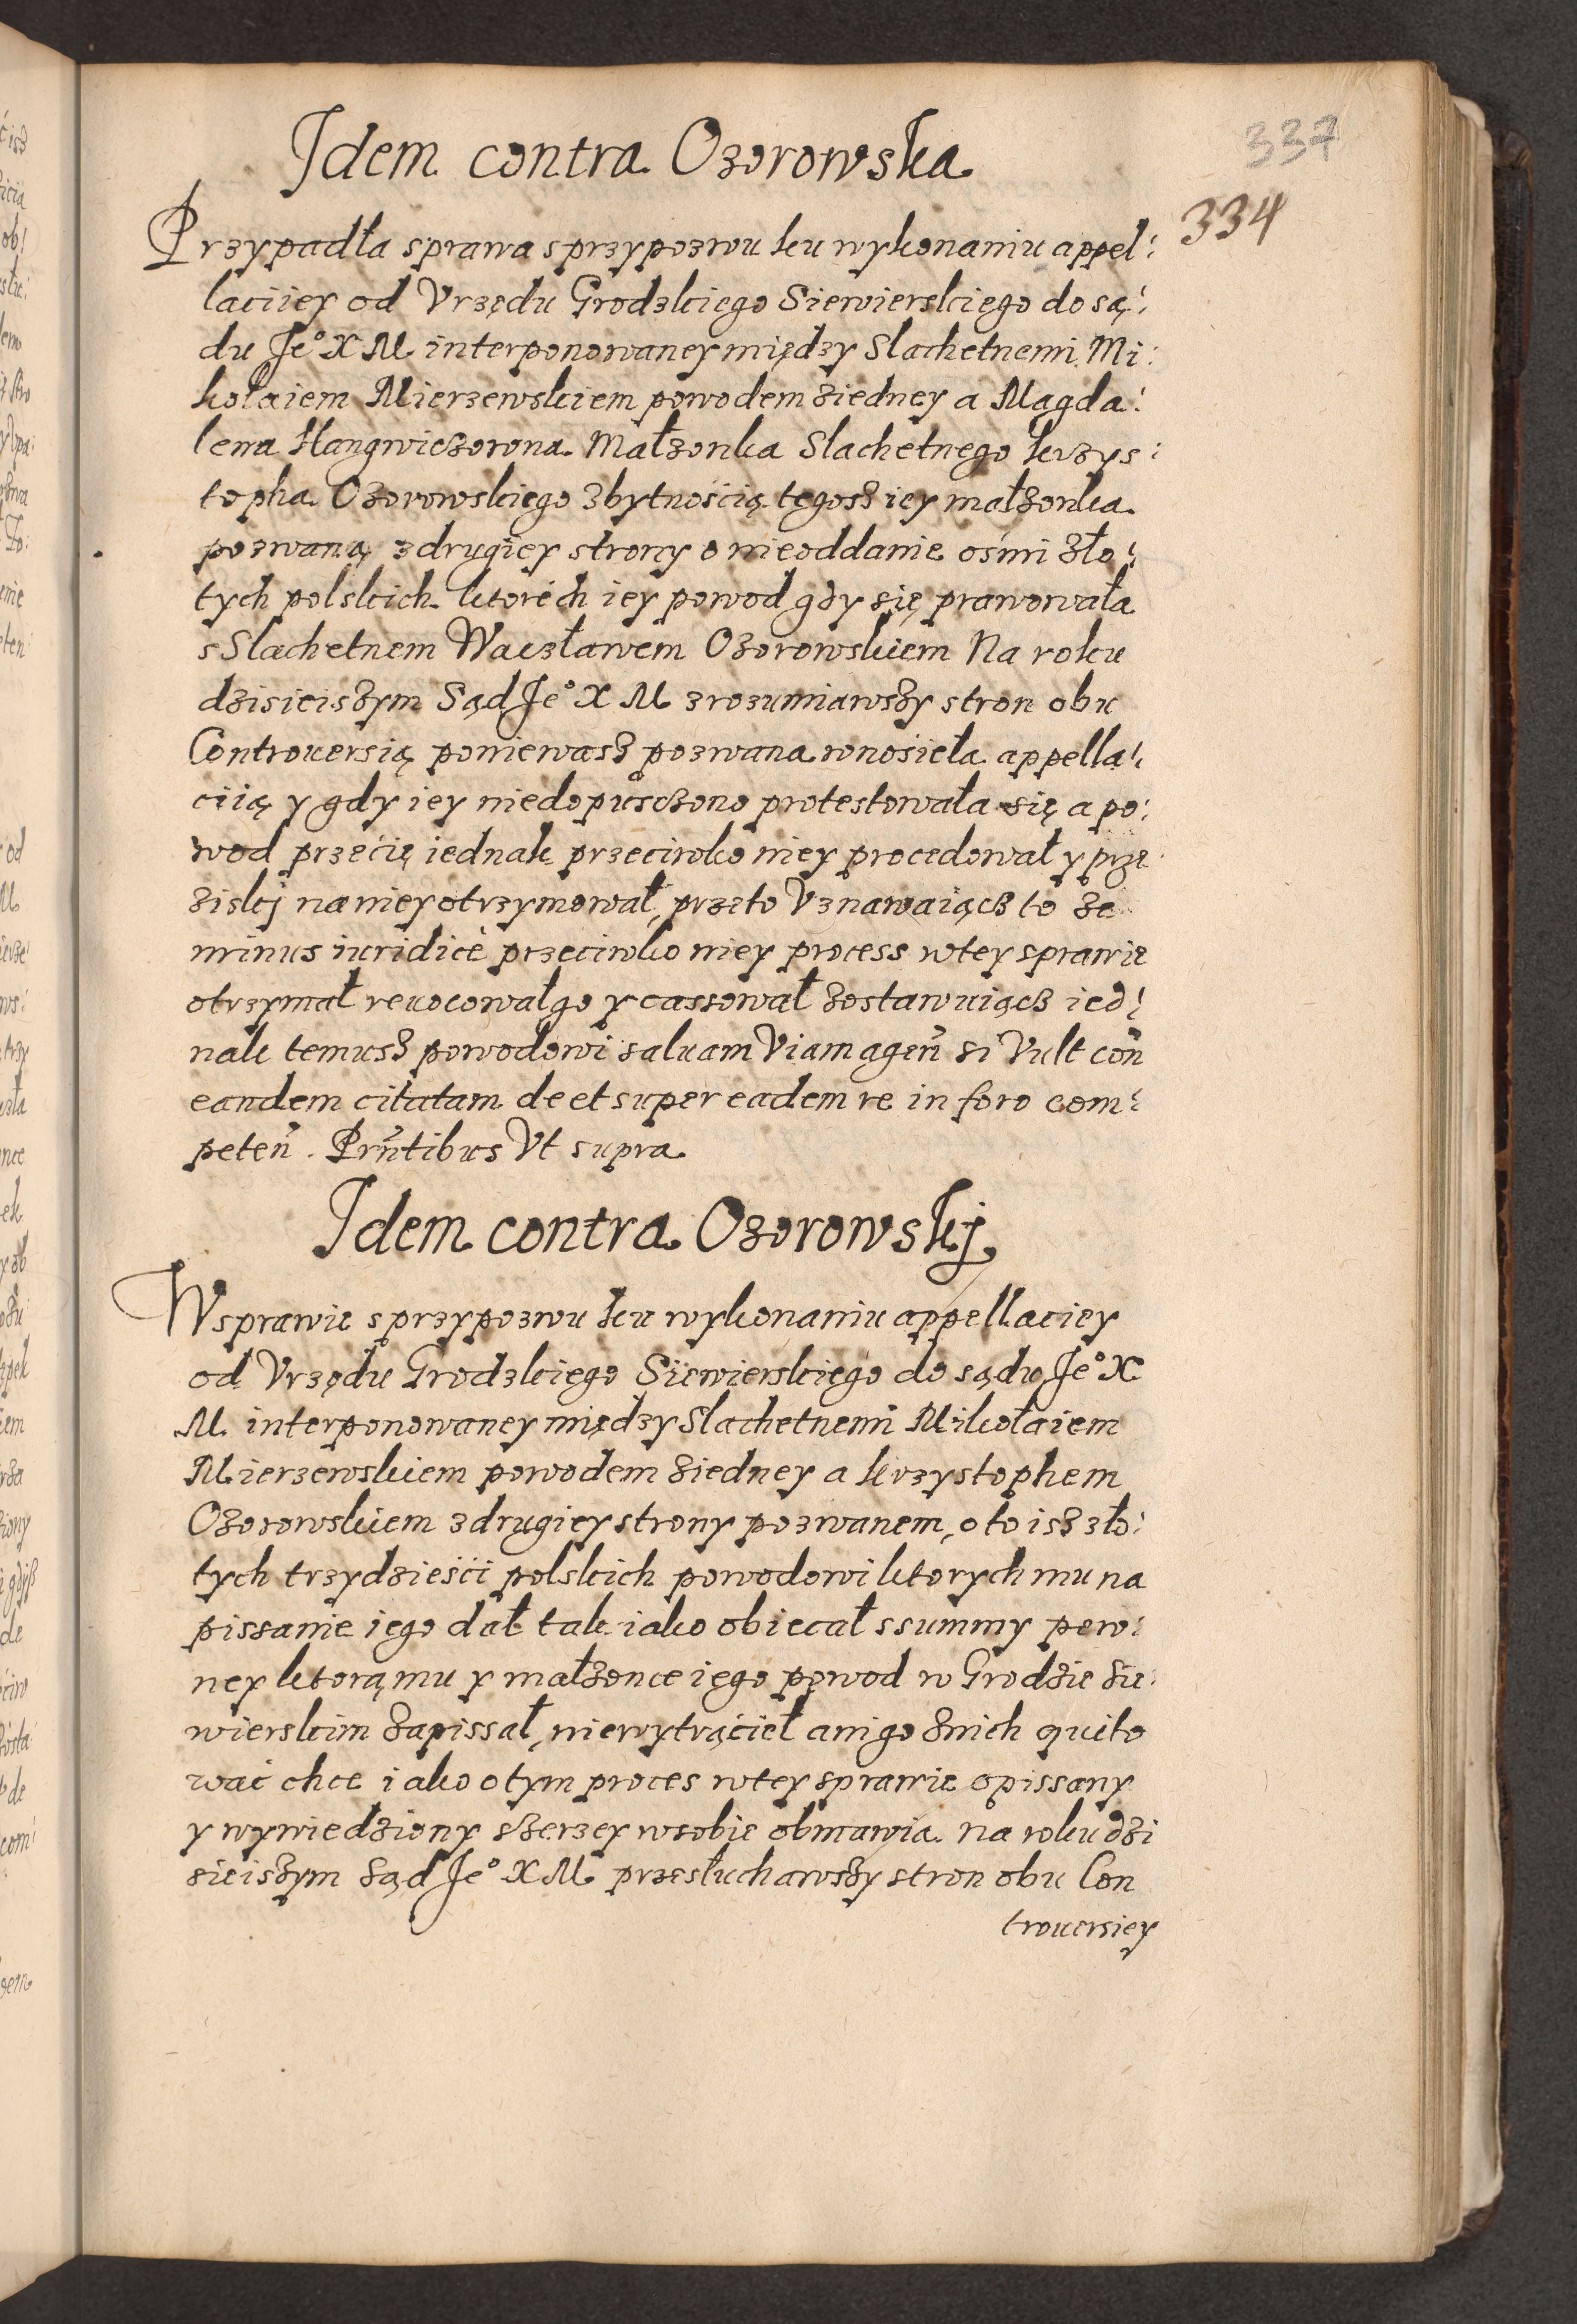 337
334
Idem contra Ozorowska
Przypadła sprawa s przypozwu ku wykonaniu appel:
laciiey od Vrzędu Grodzkiego Siewierskiego do są:
du Je° X M interponowaney między Slachetnemi Mi:
kołaiem Mierzewskiem powodem ziedney a Magda:
lena Małzonka Slachetnego Krzys:
topha Ozorowskiego zbytnością tegosz iey małzonka
pozwaną z drugiey strony o nieoddanie ośmi zło:
tych polskich ktorech iey powod gdy się prawowała
s Slachetnem Waczławem Ozorowskiem Na roku
dzisieiszym Sąd Je° X M zrozumiawszy stron obu
Controuersią poniewasz pozwana wnosieła appella:
ciią y gdy iey niedopusczono protestowała się a po:
wod przecię iednak przeciwko niey procedował y prze
ziskj na niey otrzymował, przeto Vznawaiącz to ze
minus iuridicè przeciwko niey process wtey sprawie
otrzymał reuocował go y cassował zostawuiącz ied:
nak temusz powodowi saluam Viam ageñ si Vult coñ
eandem citatam de et super eadem re in foro com:
peteñ. Prñtibus Vt supra
Idem contra Ozorowskj
W sprawie s przypozwu ku wykonaniu appellaciey
od Vrzędu Grodzkiego Siewierskiego do sądu Je° X
M. interponowaney między Slachetnemi Mikołaiem
Mierzewskiem powodem ziedney a Krzystophem
Ozorowskiem z drugiey strony pozwanem, o to isz zło:
tych trzydzieści polskich powodowi ktorych mu na
pissanie iego dał tak iako obiecał s summy pew:
ney ktorą mu y małzonce iego powod w Grodzie Sie:
wierskim zapissał, niewytrącieł ani go znich quito
wać chce iako o tym proces wtey sprawie opissany
y wywiedziony szerzey wsobie obmawia na roku dzi
sieiszym Sąd Je° X M przesłuchawszy stron obu Con
trouersiey